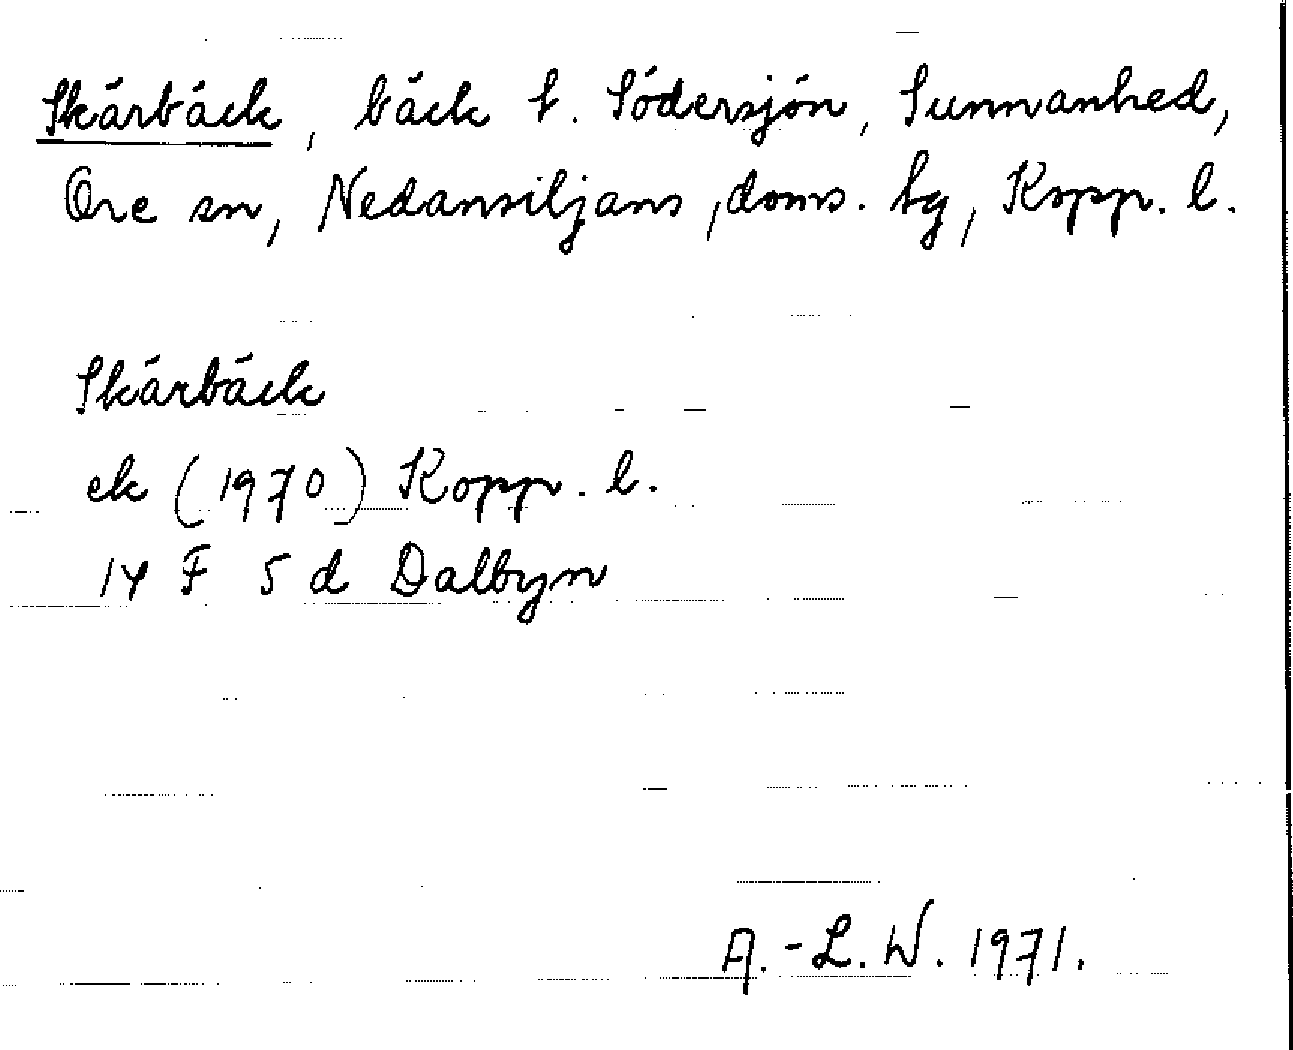 Skärbäck, bäck t. Södersjön, Sunnanhed,
Ore sn, Nedansiljans, doms. tg, Kopp. l.
Skärbäck
ek (1970) Kopp. l.
14 F 5 d Dalbyn
A.-L. W. 1971.